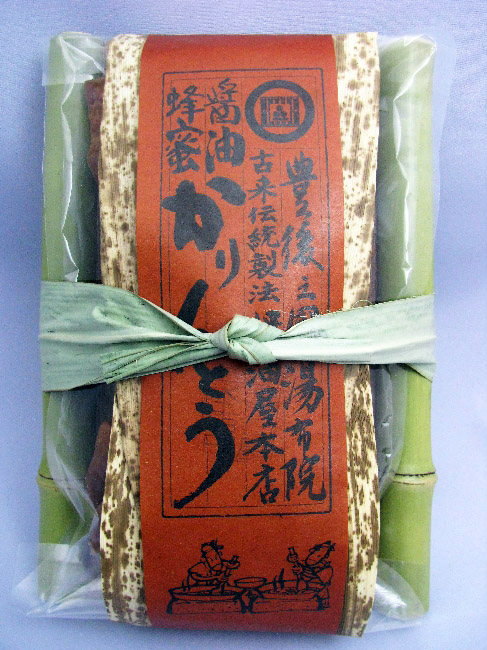 豊後之国湯布院
古来伝統製法 醤油屋本店
醤油
蜂蜜
かりんとう